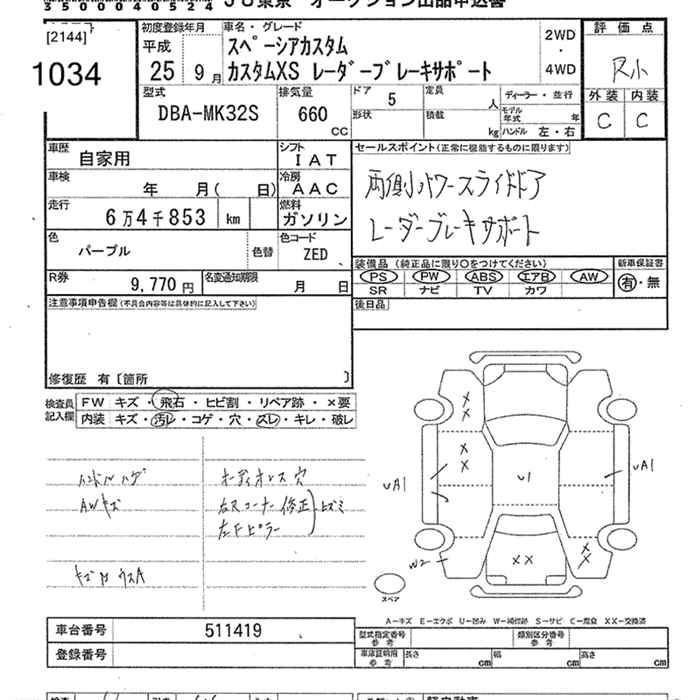 350000405​24 JU東京 オークション出品申込書
[2144]
1034
初度登録年月 車名・グレード 2WD ・ 4WD 評価点
平成 25 9月 スペーシアカスタム
カスタムXS レーダーブレーキサポート
R小
外装 内装
C C
型式 DBA-MK32S 排気量 660 CC ドア 5 定員 人 ディーラー・並行
形状 積載 kg モデル年式 年 ハンドル 左・右
車歴 自家用 シフト IAT
車検 年 月( 日) 冷房 AAC
走行 6万4千853 km 燃料 ガソリン
色 パープル 色替 色コード ZED
R券 9,770円 名変通知期限 月 日
セールスポイント(正常に機能するものに限ります)
両側パワースライドドア
レーダーブレーキサポート
装備品(純正品に限り○をつけてください) 新車保証書
PS PW ABS エアB AW 有・無
SR ナビ TV カワ
後日品
注意事項申告欄(不具合内容等は具体的に記入して下さい)
修復歴 有〔箇所 〕
検査員記入欄 FW キズ・飛石・ヒビ割・リペア跡・×要
内装 キズ・汚レ・コゲ・穴・スレ・キレ・破レ
ハンドルハゲ オーディオレス穴
AWキズ 右Rコーナー修正
左Fピラー ヒズミ
キズ凹 ウスA
X X
X X
UA1 U1 UA1
W2 XX X X
スペア
A-キズ E-エクボ U-凹み W-補修跡 S-サビ C-腐食 XX-交換済
車台番号 511419
登録番号
型式指定番号 参考 類別区分番号 参考
車庫証明用 参考 長さ cm 幅 cm 高さ cm